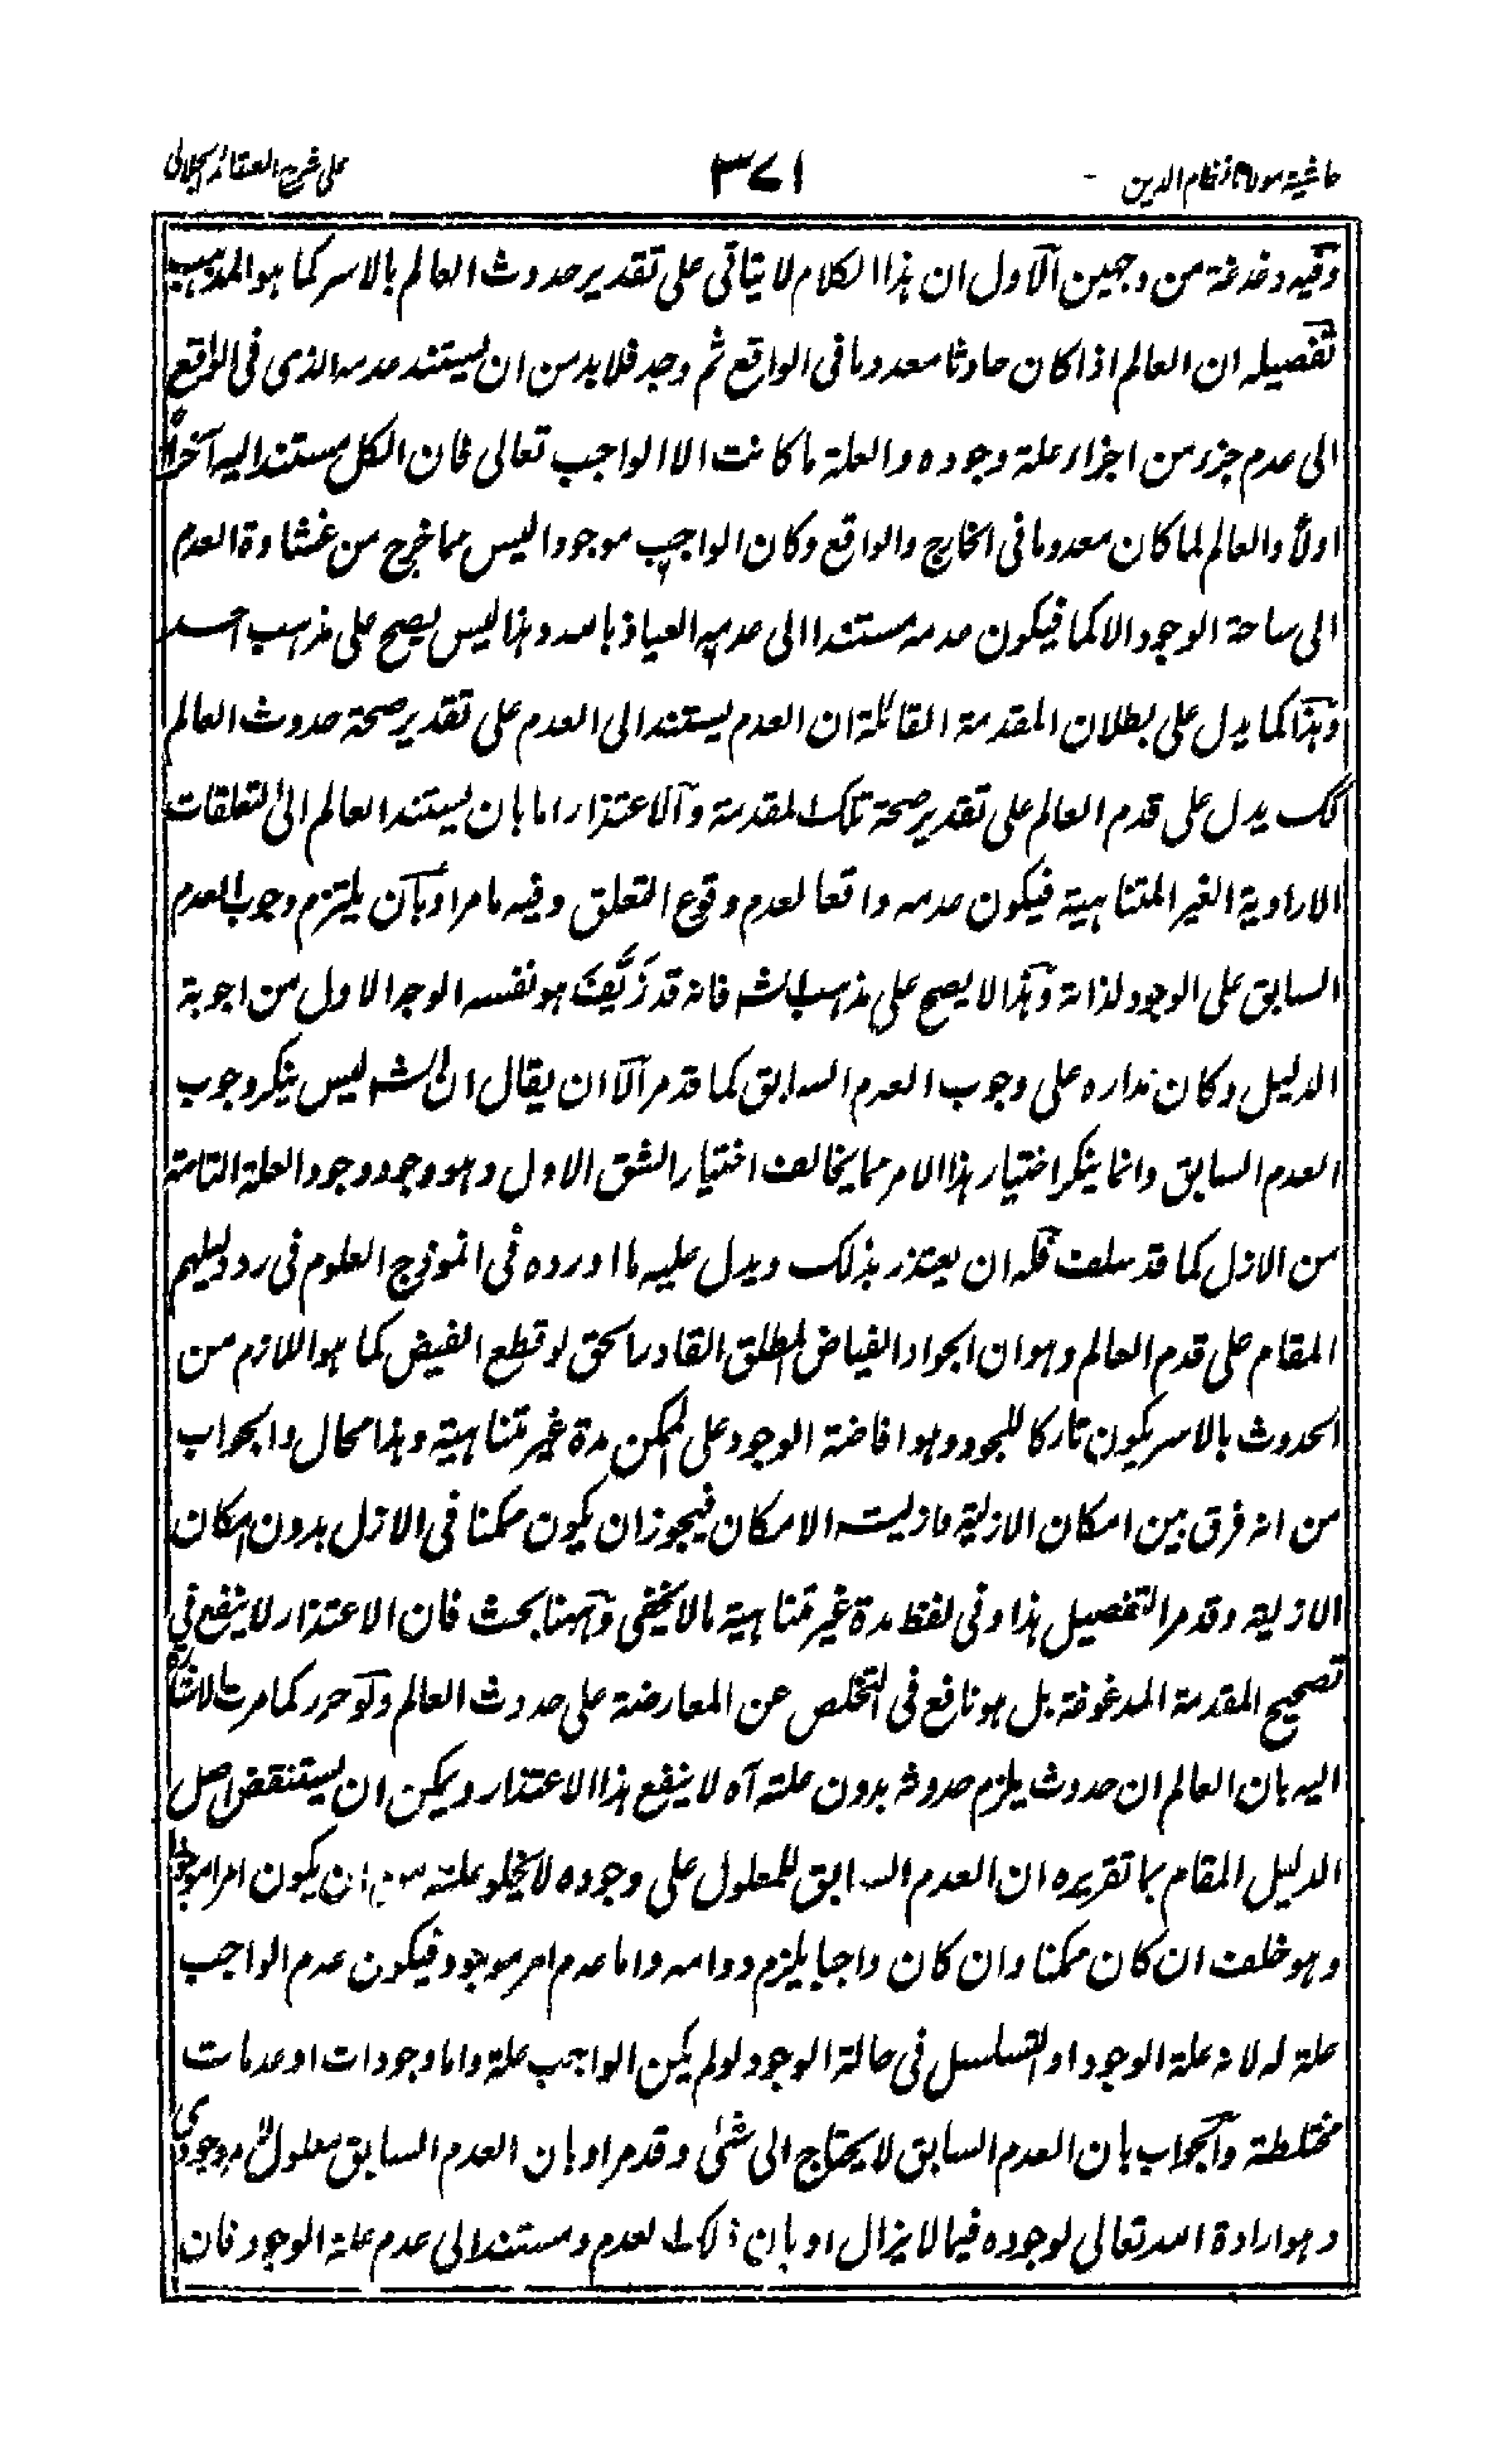 حاشیة مولانا نظام الدین
۳۷۱
علی شرح العقائد الجلالی
وفیه دغدغة من وجهین الاول ان هذا الکلام لا یتاتی علی تقدیر حدوث العالم بالاسر کما هو المذهب
تفصیله ان العالم اذا کان حادثا معدوما فی الواقع ثم وجد فلا بد من ان یستند عدمه الذی فی الواقع
الی عدم جزء من اجزاء علة وجوده والعلة ما کانت الا الواجب تعالی فان الکل مستند الیه آخرا
اولا والعالم لما کان معدوما فی الخارج والواقع وکان الواجب موجودا لیس مما خرج من غشاوة العدم
الی ساحة الوجود الا کما فیکون عدمه مستندا الی عدمه العیاذ بالله وهذا لیس یصح علی مذهب احد
وهذا کما یدل علی بطلان المقدمة القائلة ان العدم یستند الی العدم علی تقدیر صحة حدوث العالم
کک یدل علی قدم العالم علی تقدیر صحة تلک المقدمة والاعتذار اما بان یستند العالم الی التعلقات
الارادیة الغیر المتناهیة فیکون عدمه واقعا لعدم وقوع التعلق وفیه ما مر او بان یلتزم وجوب العدم
السابق علی الوجود لذاته وهذا لا یصح علی مذهب الش فانه قد زَیَّفَ هو نفسه الوجه الاول من اجوبة
الدلیل وکان مداره علی وجوب العدم السابق کما قد مر الا ان یقال ان الش لیس ینکر وجوب
العدم السابق وانما ینکر اختیار هذا الامر مما یخالف اختیار الشق الاول وهو وجود وجود العلة التامة
من الازل کما قد سلف فله ان یعتذر بذلک ویدل علیه ما اورده فی انموذج العلوم فی رد دلیلهم
المقام علی قدم العالم وهو ان الجواد الفیاض المطلق القادر الحق لو قطع الفیض کما هو اللازم من
الحدوث بالاسر یکون تارکا للجود وهو افاضة الوجود علی الممکن مدة غیر متناهیة وهذا محال والجواب
من انه فرق بین امکان الازلیة وازلیة الامکان فیجوز ان یکون ممکنا فی الازل بدون امکان
الازلیة وقد مر التفصیل هذا وفی لفظ مدة غیر متناهیة ما لا یخفی وههنا بحث فان الاعتذار لا ینفع فی
تصحیح المقدمة المدغوغة بل هو نافع فی التخلص عن المعارضة علی حدوث العالم ولو حرر کما مرت الاشارة
الیه بان العالم ان حدوث یلزم حدوثه بدون علته آه لا ینفع هذا الاعتذار ویمکن ان یستنقض اصل
الدلیل المقام بما تقریره ان العدم السابق للمعلول علی وجوده لا یخلو علته من ان یکون امرا موجودا
وهو خلف ان کان ممکنا وان کان واجبا یلزم دوامه واما عدم امر موجود فیکون عدم الواجب
علة له لانه علة الوجود او التسلسل فی حالة الوجود لو لم یکن الواجب علة واما وجودات او عدمات
مختلطة والجواب بان العدم السابق لا یحتاج الی شئی وقد مر او بان العدم السابق معلول لامر وجودی
وهو ارادة الله تعالی لوجوده فیما لا یزال او بان ذلک العدم مستند الی عدم علة الوجود فان